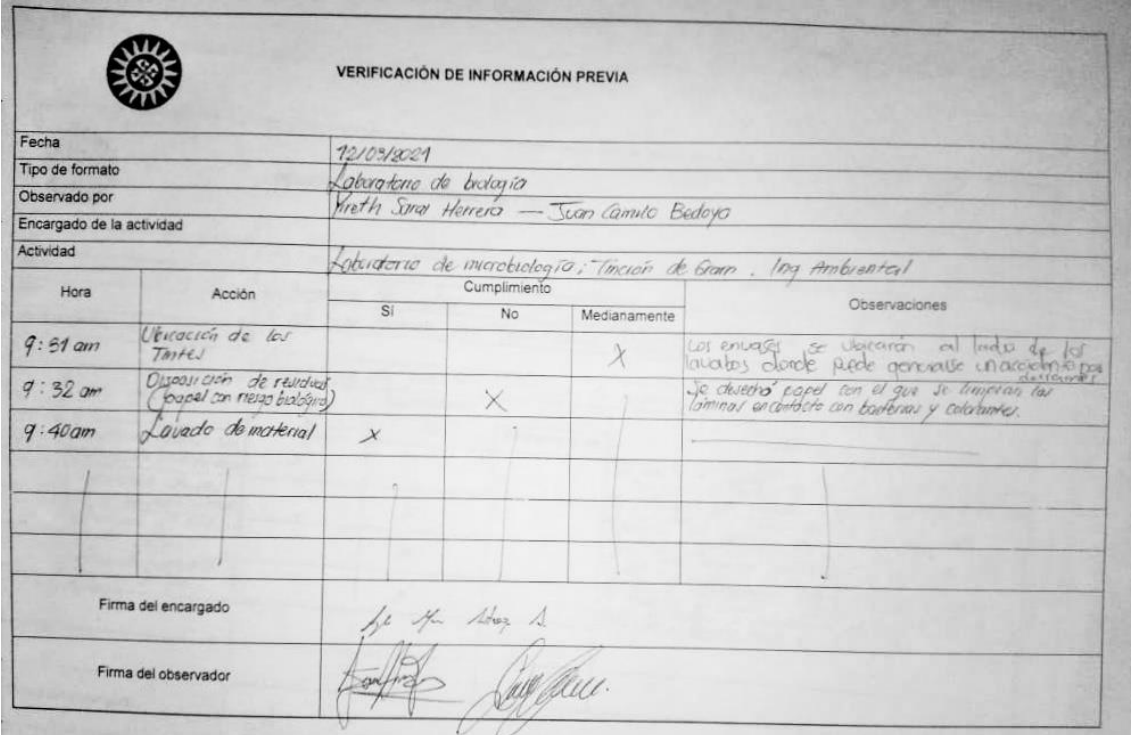 VERIFICACIÓN DE INFORMACIÓN PREVIA
Fecha 12/03/2021
Tipo de formato Laboratorio de biología
Observado por Yireth Saray Herrera — Juan Camilo Bedoya
Encargado de la actividad
Actividad Laboratorio de microbiología; Tinción de Gram. Ing Ambiental
Hora Acción Cumplimiento Observaciones
Sí No Medianamente
9:31 am Ubicación de los Tintes X Los envases se ubicarón al lado de los
lavabos donde puede generarse un accidente por
derrames
9:32 am Disposición de residuos X Se desechó papel con el que se limpian las
(papel con riesgo biológico) láminas en contacto con bacterias y colorantes.
9:40am Lavado de material X
Firma del encargado
Firma del observador